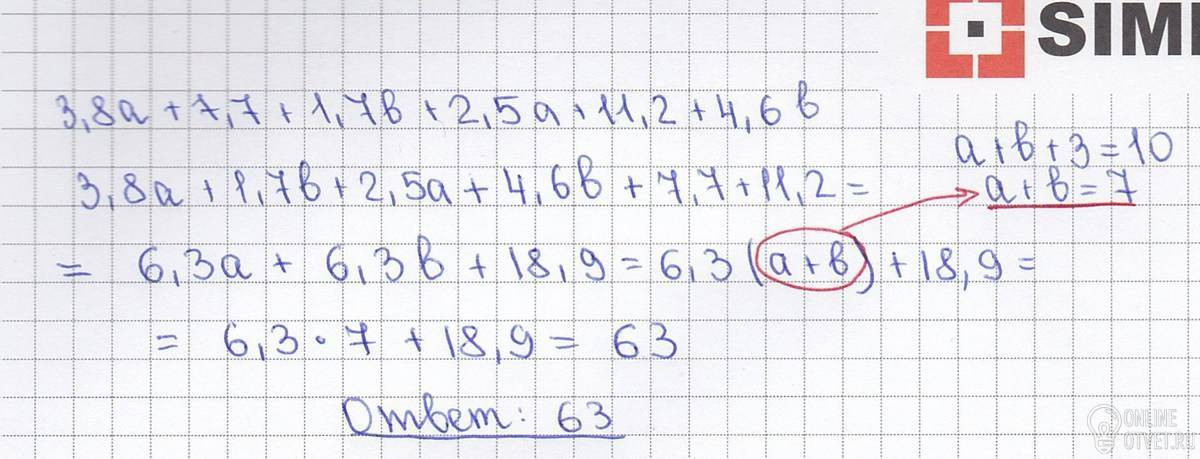 SIM
3,8a + 7,7 + 1,7b + 2,5a + 11,2 + 4,6b
a + b + 3 = 10
3,8a + 1,7b + 2,5a + 4,6b + 7,7 + 11,2 =
a + b = 7
= 6,3a + 6,3b + 18,9 = 6,3 (a + b) + 18,9 =
= 6,3 · 7 + 18,9 = 63
Ответ: 63
ONLINE
OTVET.RU